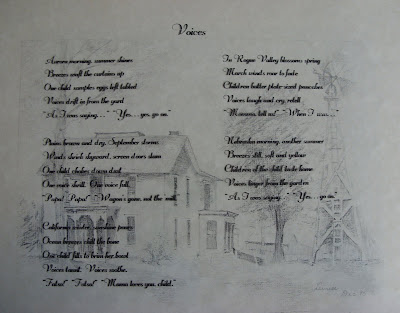 Voices
Aurora morning, summer shines
Breezes waft the curtains up
One child samples eggs left tabled
Voices drift in from the yard
"As I was saying…" "Yes… yes, go on."
Plains brown and dry, September storms
Winds shriek skyward, screen doors slam
One child chokes down dust
One more swill. One voice full.
"Papa! Papa!" "Wagon's gone, not the mill."
California winter, sunshine pours
Ocean breezes chill the bone
One child falls to bean her head
Voices taunt. Voices soothe.
"Fatso!" "Fatso!" "Mama loves you, child."
In Rogue Valley blossoms spring
March winds roar to fade
Children butter plate-sized pancakes
Voices laugh and cry, retell
"Mamama, tell us!" "When I was…"
Nebraska morning, another summer
Breezes still, soft and yellow
Children of the child inside home
Voices linger from the garden
"As I was saying…" "Yes… go on."